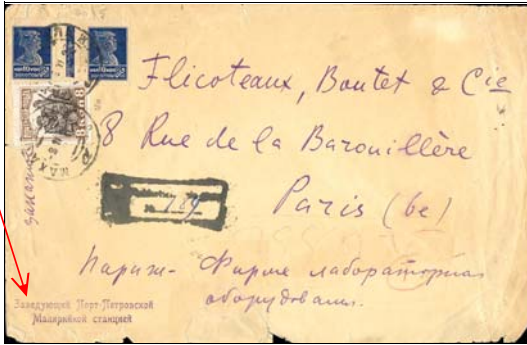 Flicoteaux, Boutet & Cie
8 Rue de la Barouillère
Paris (6e)
заказное
№ 789
Париж - Фирме лабораторнаго
оборудования.
Заведующий Порт-Петровской
Малярийной станцией